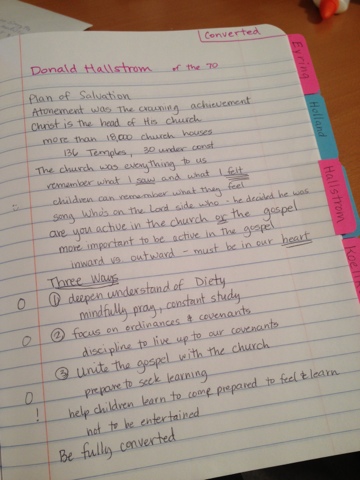 Converted
Donald Hallstrom of the 70
Plan of Salvation
Atonement was the crowning achievement
Christ is the head of His church
more than 18,000 church houses
136 Temples, 30 under const
The church was everything to us
remember what I saw and what I felt
children can remember what they feel
song Who's on the Lord side who - he decided he was
are you active in the church or the gospel
more important to be active in the gospel
inward vs outward - must be in our heart
Three Ways
① deepen understand of Diety
mindfully pray, constant study
② focus on ordinances & covenants
discipline to live up to our covenants
③ Unite the gospel with the church
prepare to seek learning
! help children learn to come prepared to feel & learn
not to be entertained
Be fully converted
Eyring
Holland
Hallstrom